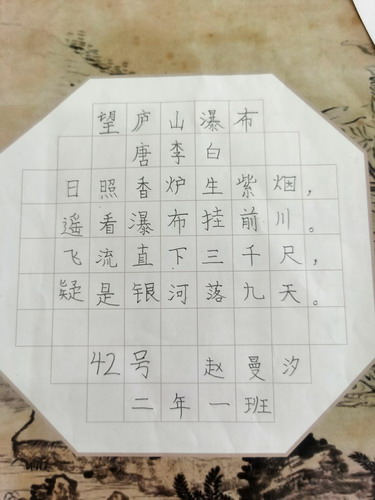 望庐山瀑布
唐 李白
日照香炉生紫烟，
遥看瀑布挂前川。
飞流直下三千尺，
疑是银河落九天。
42号 赵曼汐
二年一班